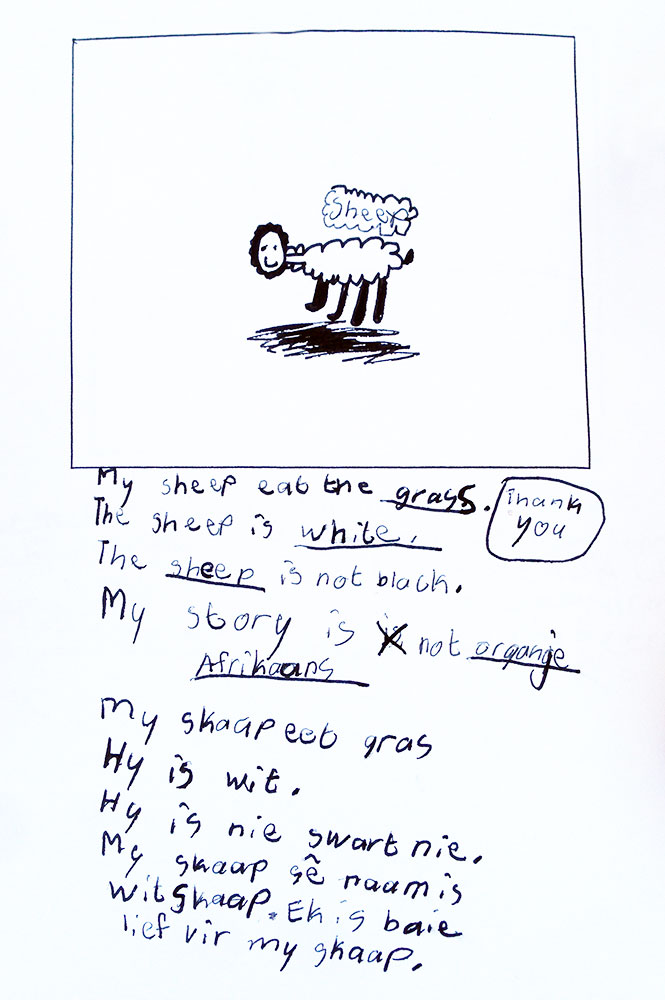 Sheep
My sheep eat the grass.
Thank
you
The sheep is white.
The sheep is not black.
My story is is not organje
Afrikaans
My skaap eet gras
Hy is wit.
Hy is nie swart nie.
My skaap sê naam is
witskaap. Ek is baie
lief vir my skaap.